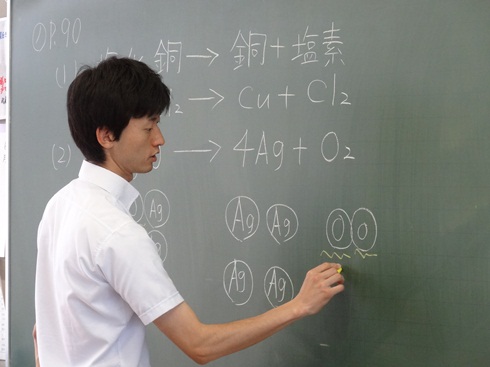 ①P.90
(1) 銅→銅+塩素
→Cu+Cl₂
(2) →4Ag+O₂
Ag Ag Ag O O
Ag Ag